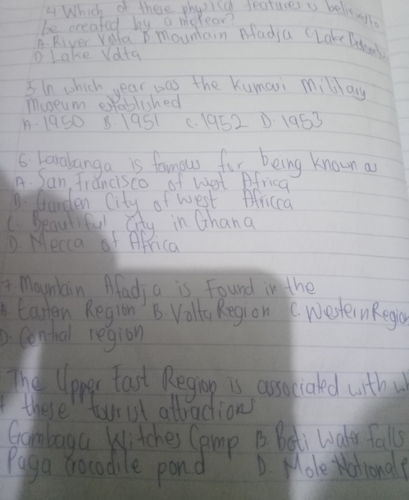 4 Which of these physical features is believed to
be created by a meteor?
A River Volta B Mountain Afadja C Lake
D. Lake Volta
5 In which year was the Kumasi military
Museum established
A. 1950 B. 1951 C. 1952 D. 1953
6. Larabanga is famous for being known as
A. San francisco of West Africa
B. Garden City of West Africca
C. Beautiful City in Ghana
D. Mecca of Africa
7 Mountain Afadja is Found in the
A. Easten Region B. Volta Region C Western Region
D. Central region
The Upper East Region is associated with
these tourist attraction
Gambaga Witches Camp B. Boti Water falls
Paga Crocodile pond D. Mole National P